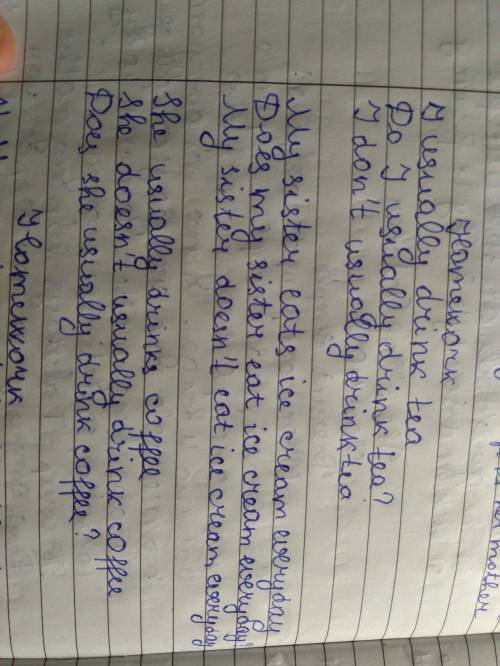 to mother
Homework
I usually drink tea
Do I usually drink tea?
I don't usually drink tea
My sister eats ice cream everyday
Does my sister eat ice cream everyday?
My sister doesn't eat ice cream everyday
She usually drinks coffee
She doesn't usually drink coffee
Does she usually drink coffee?
Homework